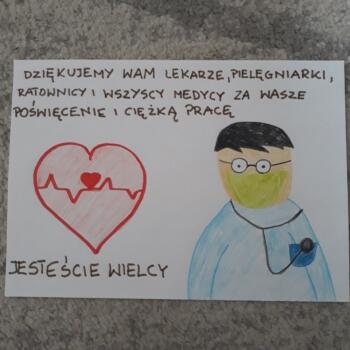 DZIĘKUJEMY WAM LEKARZE, PIELĘGNIARKI,
RATOWNICY I WSZYSCY MEDYCY ZA WASZE
POŚWIĘCENIE I CIĘŻKĄ PRACĘ
JESTEŚCIE WIELCY